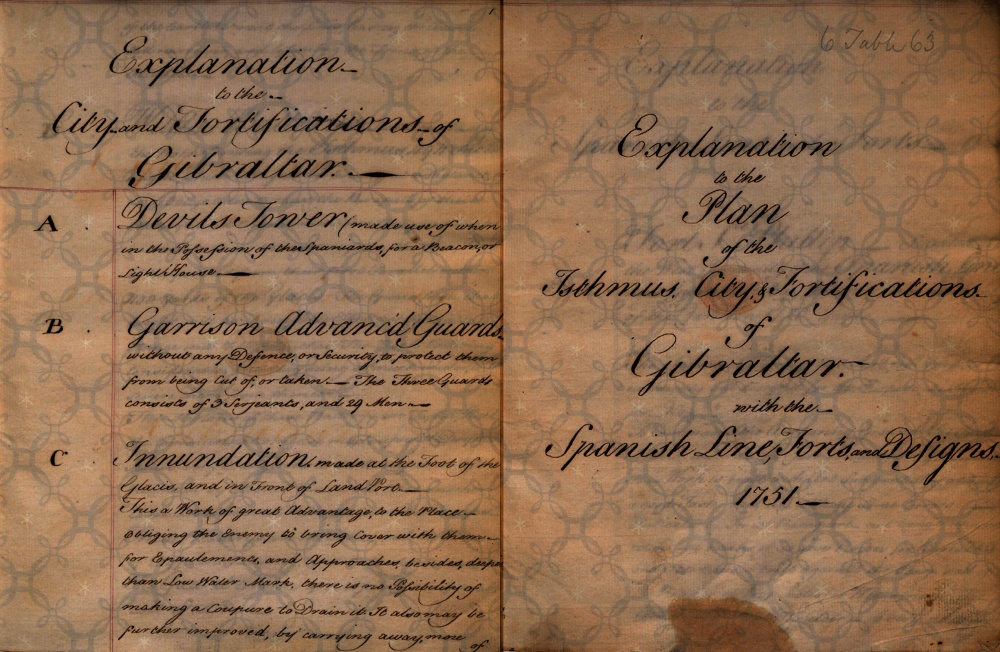 1.
Explanation
to the
City and Fortifications of
Gibraltar.
A . Devils Tower (made use of when
in the Possession of the Spaniards, for a Beacon, or
Light House.
B . Garrison Advanc'd Guards.
without any Defence, or Security, to protect them
from being Cut of, or taken. The Three Guards
consists of 3 Serjeants, and 29 Men
C . Innundation, made at the Foot of the
Glacis, and in Front of Land Port.
This a Work of great Advantage, to the Place
obliging the Enemy to bring Cover with them
for Epaulements, and Approaches, besides, deeper
than Low Water Mark, there is no Possibility of
making a Coupure to Drain it. It also may be
further improved, by carrying away, more
of
6 Table 63
Explanation
to the
Plan
of the
Isthmus, City, & Fortifications
of
Gibraltar.
with the
Spanish Line, Forts, and Designs.
1751.